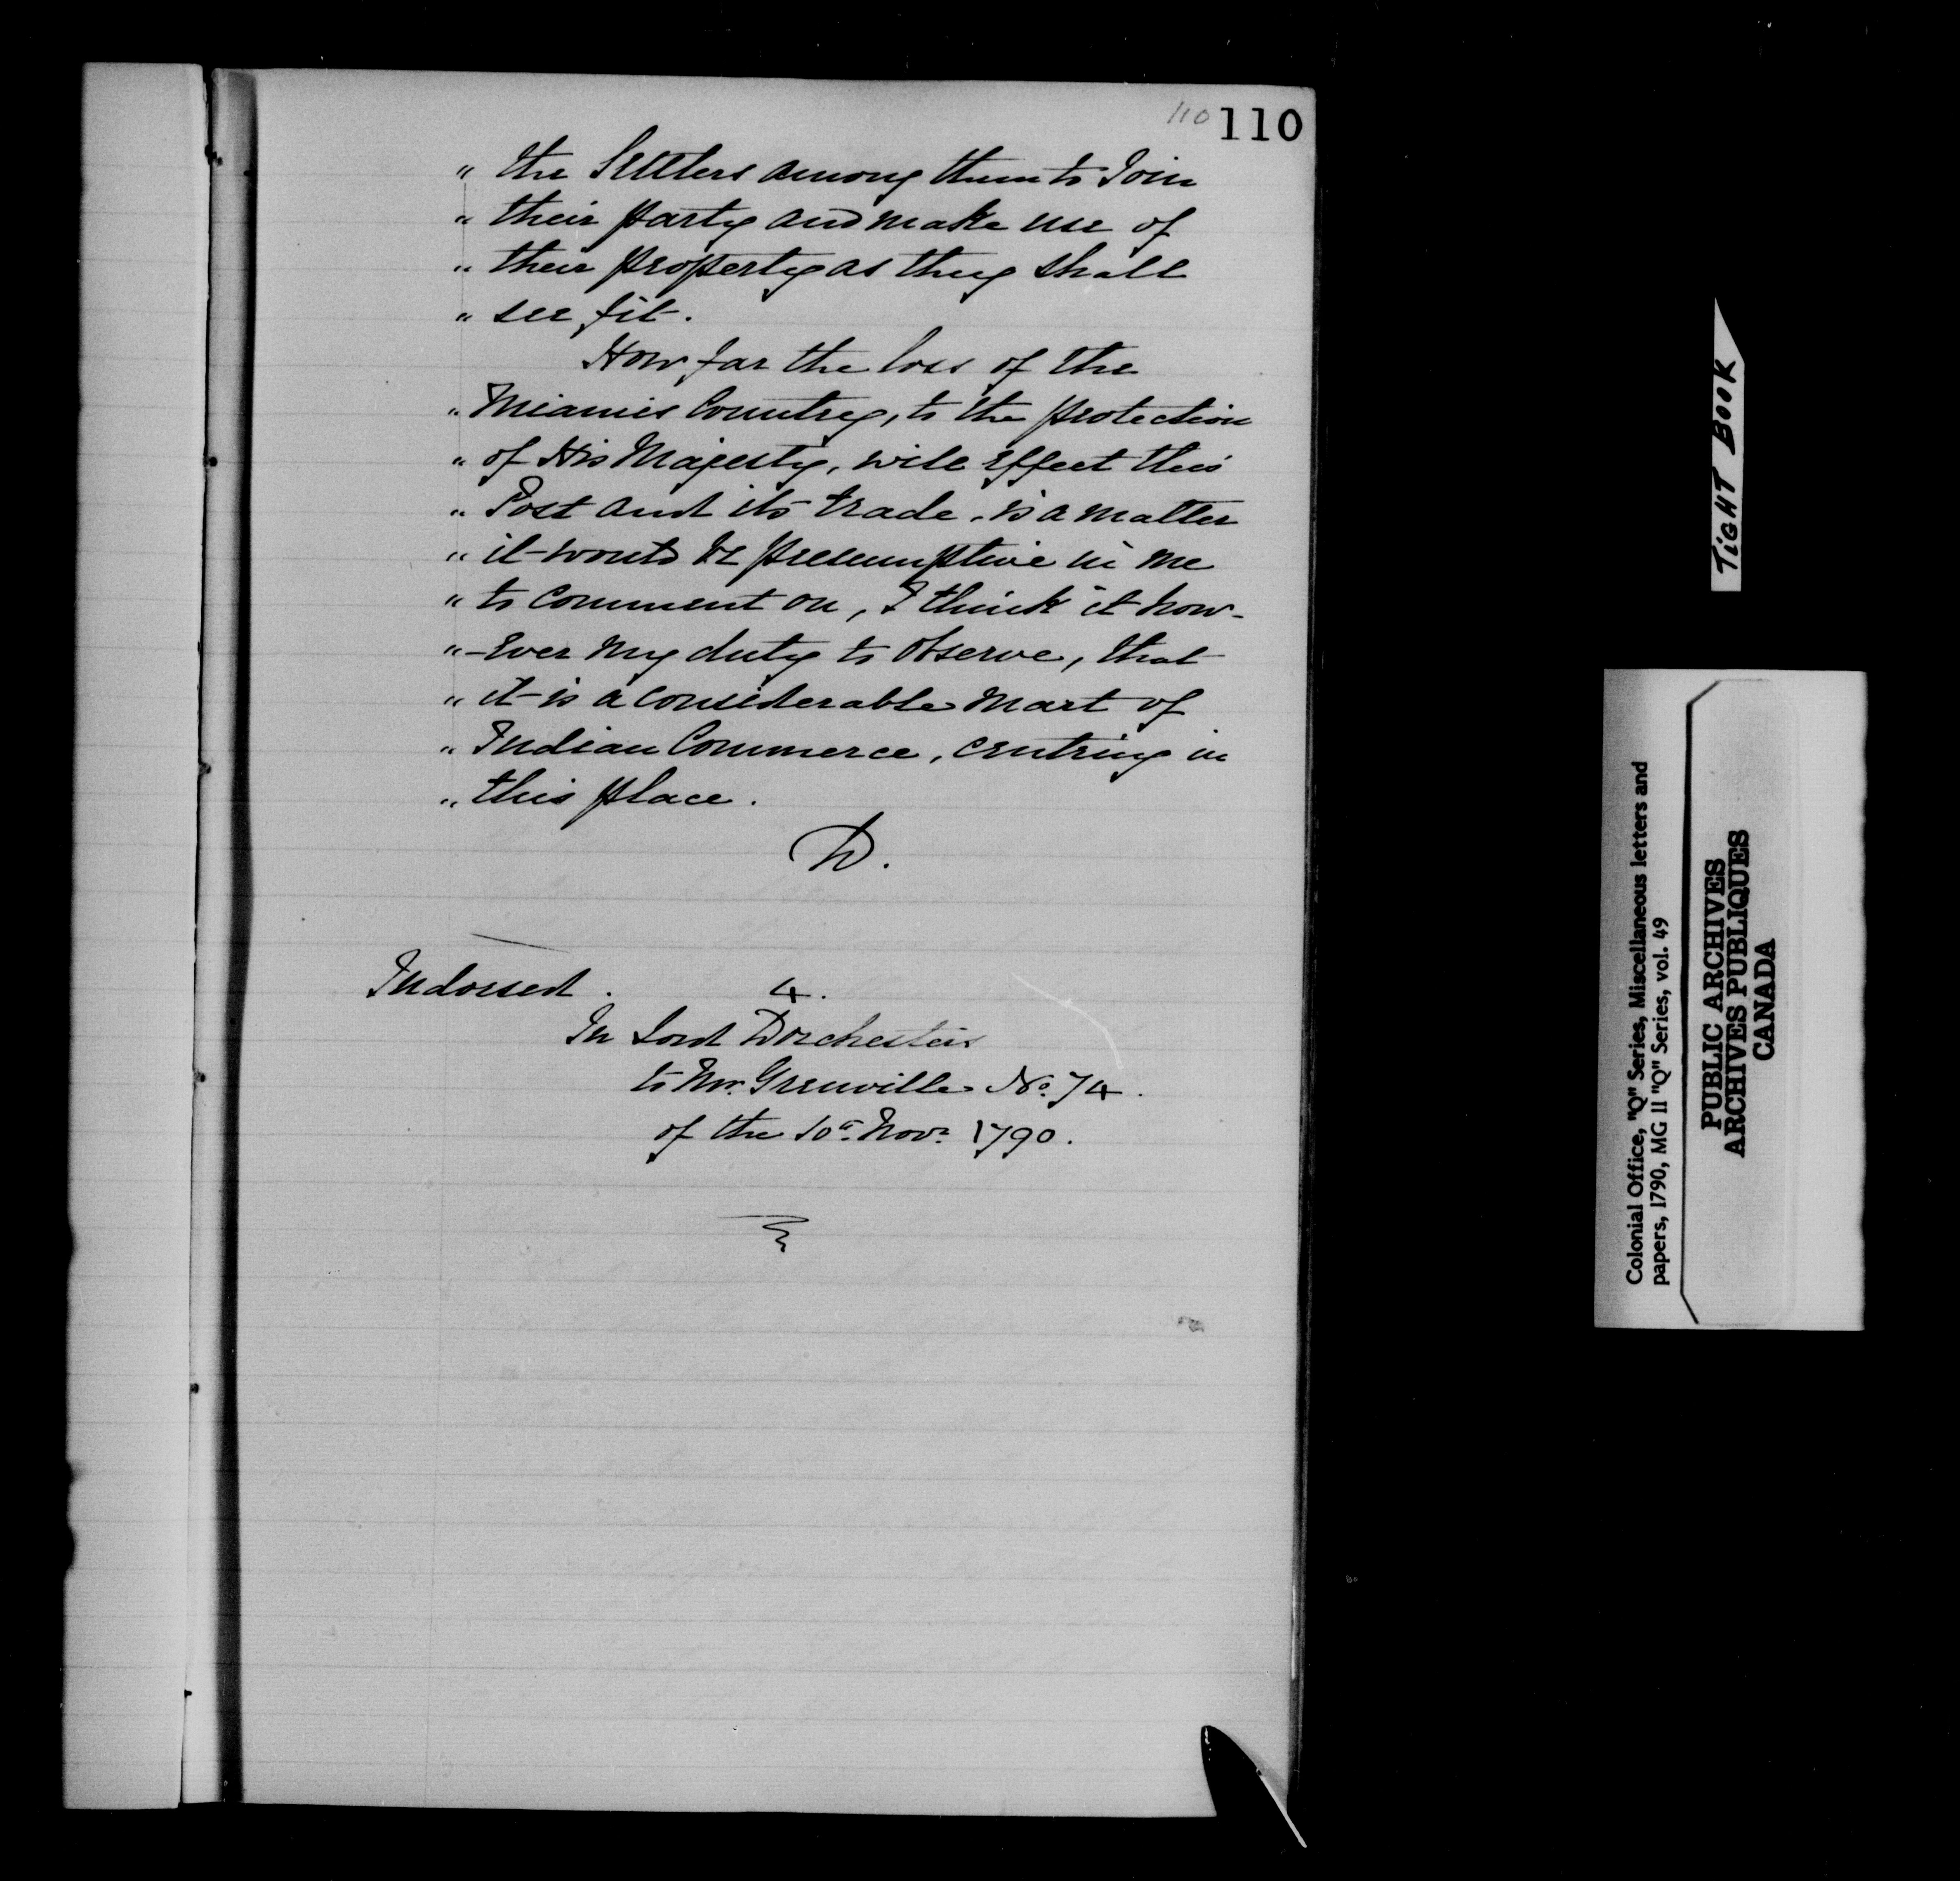 110 110
" the Settlers among them to Join
" their party and make use of
" their property as they shall
" see fit.
How far the loss of the
" Miamis Country, to the protection
" of His Majesty, will effect this
" Post and its trade, is a matter
" it would be presumptive in me
" to comment on, I think it how-
" -ever my duty to observe, that
" it is a considerable mart of
" Indian Commerce, centring in
" this place.
D.
Indorsed. 4.
In Lord Dorchesters
to Mr. Grenville No. 74.
of the 10th Novr. 1790.
TIGHT BOOK
Colonial Office, "Q" Series, Miscellaneous letters and
papers, 1790, MG 11 "Q" Series, vol. 49
PUBLIC ARCHIVES
ARCHIVES PUBLIQUES
CANADA